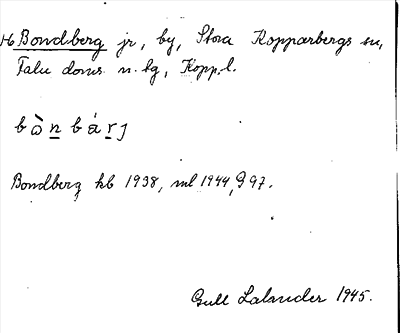 Hb Bondberg jr, by, Stora Kopparbergs sn,
Falu doms. n. tg, Kopp. l.
b ò n b á r j
Bondberg kb 1938, ml 1944, G 97.
Gull Lalander 1945.